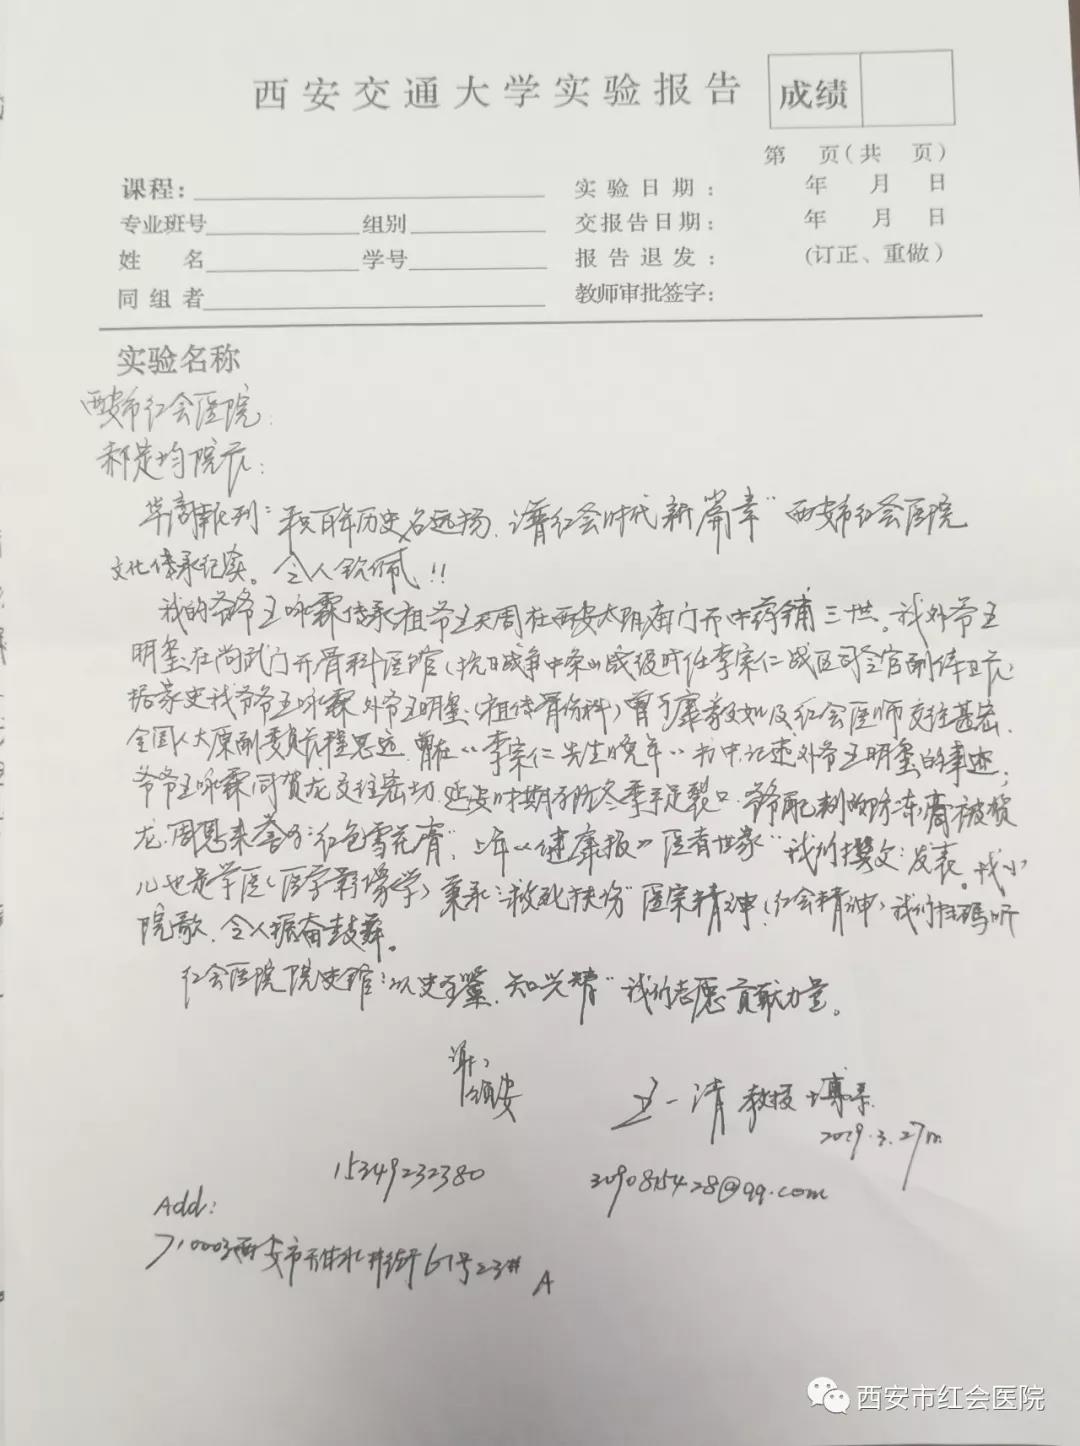 西安交通大学实验报告
成绩
第 页(共 页)
课程: 实验日期: 年 月 日
专业班号 组别 交报告日期: 年 月 日
姓 名 学号 报告退发: (订正、重做)
同组者 教师审批签字:
实验名称
西安市红会医院:
郝定均院长:
华商报刊:"承百年历史名远扬,谱红会时代新篇章"西安市红会医院
文化传承纪实。令人钦佩!!
我的爷爷王咏霖传承祖爷王天周在西安太阳庙门开中药铺三世。我外爷王
明玺在尚武门开骨科医馆(抗日战争中条山战役时任李宗仁战区司令官副
据家史我爷爷王咏霖外爷王明玺(祖传骨伤科)曾与 及红会医师交往甚密.
全国人大原副委员长程思远,曾在"李宗仁先生晚年"书中记述外爷王明玺的事迹;
爷爷王咏霖同贺龙交往密切,延安时期 防冬季手足裂口,爷爷配制的防冻膏被贺
龙.周恩来誉为:"红色雪花膏".上年《健康报》医者世家"我们撰文:发表。我小
儿也是学医(医学影像学)秉承:"救死扶伤"医宗精神,(红会精神)我们扫码听
院歌,令人振奋鼓舞。
红会医院院史馆:"以史 鉴,知兴替"我们志愿贡献力量。
谢谢
颂安
王一清 教授
2019.3.27
15349232380
Add:
710003西安市 61号23# A
西安市红会医院